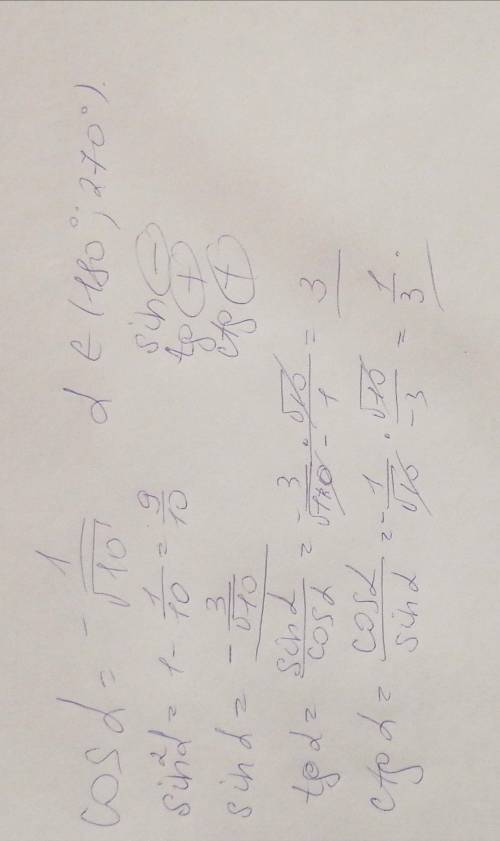 cos α = - 1/√10   α ∈ (180°; 270°).
sin²α = 1 - 1/10 = 9/10   sin ⊖
tg ⊕
sin α = - 3/√10   ctg ⊕
tg α = sin α / cos α = - 3/√10 · √10/-1 = 3
ctg α = cos α / sin α = - 1/√10 · √10/-3 = 1/3.